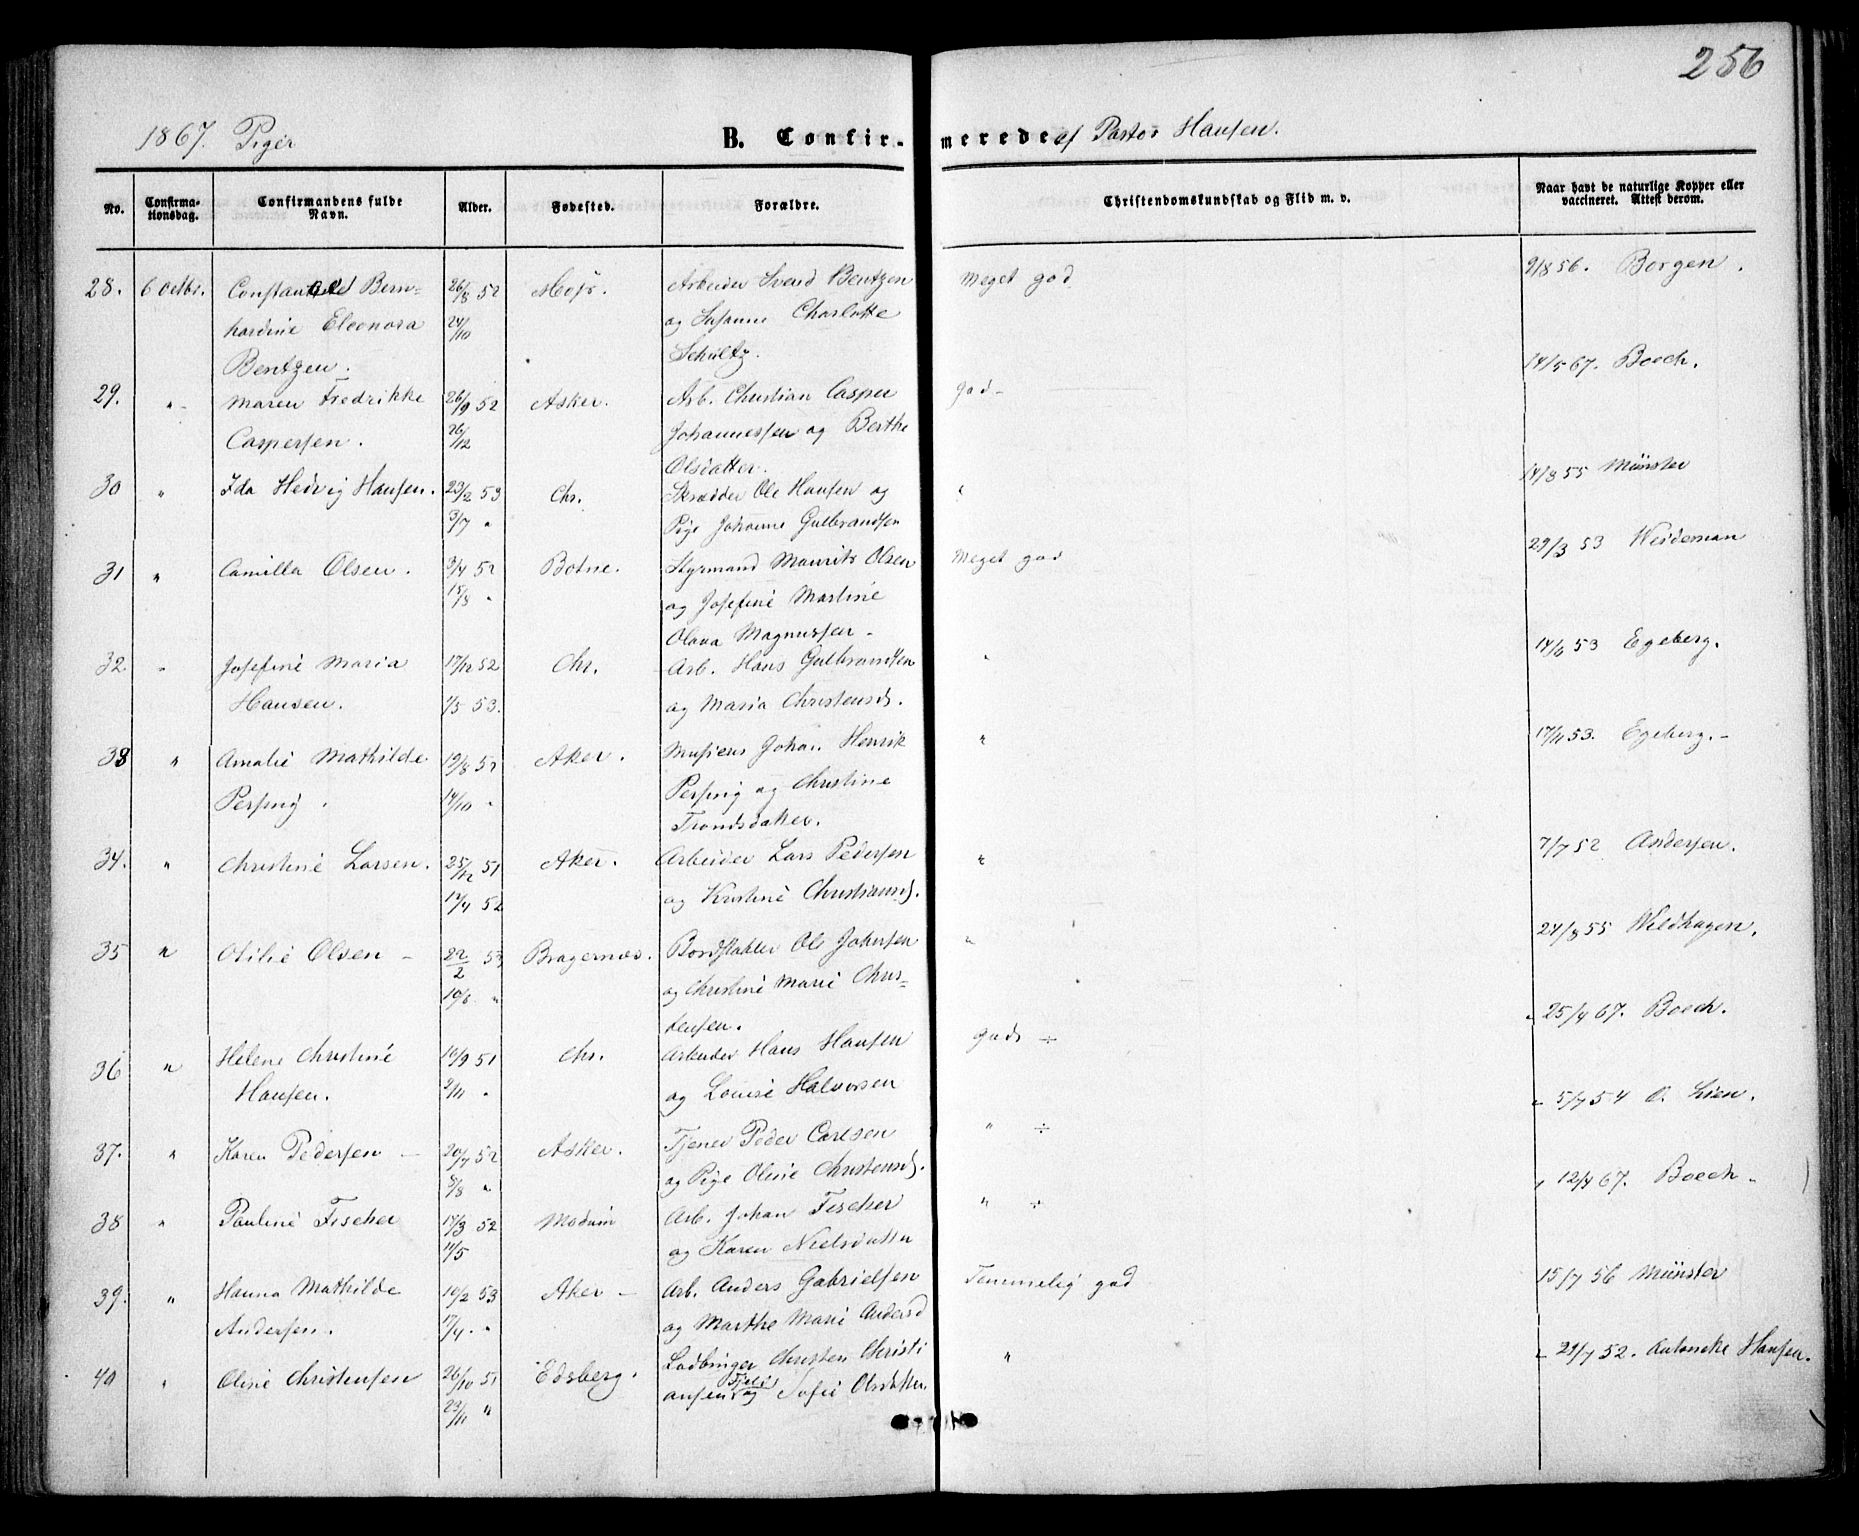 256
1867. Piger B. Confirmerede af Pastor Hansen.
No. Confirmationsdag. Confirmandens fulde Navn. Alder. Fødested. Forældre. Christendomskundskab og Flid m. v. Naar havt de naturlige Kopper eller vaccineret. Attest derom.
28. 6 Octbr. Bern= 26/8 52 Arbeider Svend Bentzen Meget god 9/8 56. Borgen.
hardine Eleonora 24/10 og Susanne Charlotte
Bentzen. Schultz.
29. " Maren Fredrikke 26/9 52 Asker. Arb. Christian Casper god 14/5 67. Boeck.
Caspersen. 26/12 Johannessen og Berthe
Olsdatter.
30 " Ida Hedvig Hansen. 23/2 53 Chr. Skrædder Ole Hansen og " 14/8 55 Münster
3/7 " Pige Johanne Gulbrandsen
31 " Camilla Olsen. 3/4 52 Botne. Styrmand Maurits Olsen Meget god 29/3 53 Weideman
15/8 " og Josefine Martine
Olava Magnussen
32. " Josefine Maria 17/12 52 Chr. Arb. Hans Gulbrandsen " 14/6 53 Egeberg.
Hansen. 1/5 53. og Maria Christensd.
33 " Amalie Mathilde 19/8 52 Aker. Johan Henrik " 17/11 53. Egeberg.
Persing. 14/10 " Persing og Christine
Trondsdatter.
34. " Christine Larsen. 25/12 51 Aker. Arbeider Lars Pedersen " 7/7 52 Andersen.
12/4 52 og Kristine Christiansd.
35 " Otilie Olsen 22/2 53 Bragernæs. Bordstabler Ole Johnsen " 24/8 55 Wildhagen.
10/6 " og Christine Marie Chris=
tensen.
36 " Helene Christine 10/9 51 Chr. Arbeider Hans Hansen god ÷ " 25/4 67. Boeck.
Hansen. 2/11 " og Louise Halvorsen
37. " Karen Pedersen 20/7 52 Asker. Tjener Peder Carlsen " ÷ " 5/7 54 O. Lien.
8/8 " og Pige Oline Christensd.
38 " Pauline Fischer 17/3 52 Modum Arb. Johan Fischer " ÷ " 12/4 67. Boeck
11/5 og Karen Nielsdatter
39. " Hanna Mathilde 10/2 53 Aker Arb. Anders Gabrielsen Temmelig god 15/7 56 Münster
Andersen. 17/4 " og Marthe Marie Andersd
40 " Oline Christensen 26/10 51 Edsberg. Christen Christi " " 29/7 52. Hansen.
23/11 " ansen og Sofie Olsdatter.